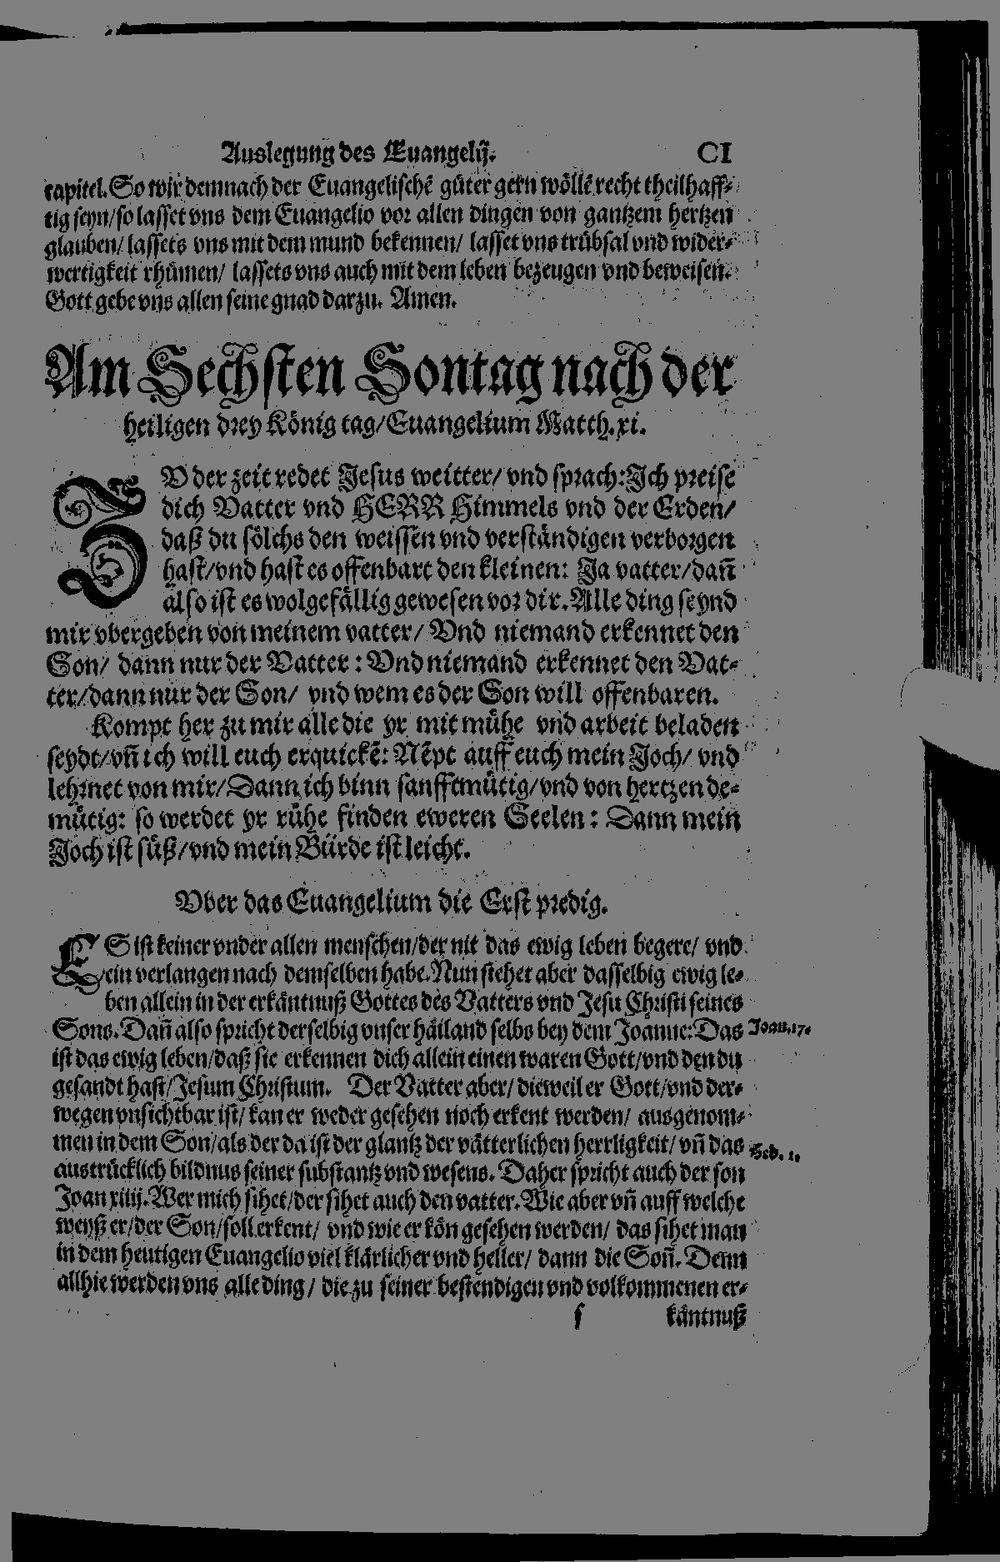 Auslegung des Euangelij. CI
capitel. So wir demnach der Euangelischẽ güter gern wöllẽ recht theilhaff-
tig seyn/so lasset vns dem Euangelio vor allen dingen von gantzem hertzen
glauben/ lassets vns mit dem mund bekennen/ lasset vns trübsal vnd wider-
wertigkeit rhümen/ lassets vns auch mit dem leben bezeugen vnd beweisen.
Gott gebe vns allen seine gnad darzu. Amen.
Am Sechsten Sontag nach der
heiligen drey König tag/Euangelium Matth.xi.
ZV der zeit redet Jesus weitter/ vnd sprach: Ich preise
dich Vatter vnd HERR Himmels vnd der Erden/
daß du sölchs den weissen vnd verständigen verborgen
hast/vnd hast es offenbart den kleinen: Ja vatter/dañ
also ist es wolgefällig gewesen vor dir. Alle ding seynd
mir vbergeben von meinem vatter/ Vnd niemand erkennet den
Son/ dann nur der Vatter: Vnd niemand erkennet den Vat-
ter/dann nur der Son/ vnd wem es der Son will offenbaren.
Kompt her zu mir alle die yr mit mühe vnd arbeit beladen
seydt/vñ ich will euch erquickẽ: Nẽpt auff euch mein Joch/ vnd
lehrnet von mir/Dann ich binn sanfftmütig/vnd von hertzen de-
mütig: so werdet yr rühe finden eweren Seelen: Dann mein
Joch ist süß/vnd mein Bürde ist leicht.
Vber das Euangelium die Erst predig.
ES ist keiner vnder allen menschen/der nit das ewig leben begere/ vnd
ein verlangen nach demselben habe. Nun stehet aber dasselbig ewig le-
ben allein in der erkäntnuß Gottes des Vatters vnd Jesu Christi seines
Sons. Dañ also spricht derselbig vnser häiland selbs bey dem Joanne: Das Joan.17.
ist das ewig leben/daß sie erkennen dich allein einen waren Gott/vnd den du
gesandt hast/Jesum Christum. Der Vatter aber/ dieweil er Gott/vnd der-
wegen vnsichtbar ist/ kan er weder gesehen noch erkent werden/ ausgenom-
men in dem Son/als der da ist der glantz der vätterlichen herrligkeit/ vñ das Heb. 1.
austrücklich bildnus seiner substantz vnd wesens. Daher spricht auch der son
Joan xiiij. Wer mich sihet/der sihet auch den vatter. Wie aber vñ auff welche
weyß er/der Son/soll erkent/ vnd wie er kön gesehen werden/ das sihet man
in dem heutigen Euangelio viel klärlicher vnd heller/ dann die Soñ. Denn
allhie werden vns alle ding/ die zu seiner bestendigen vnd volkommenen er-
s käntnuß